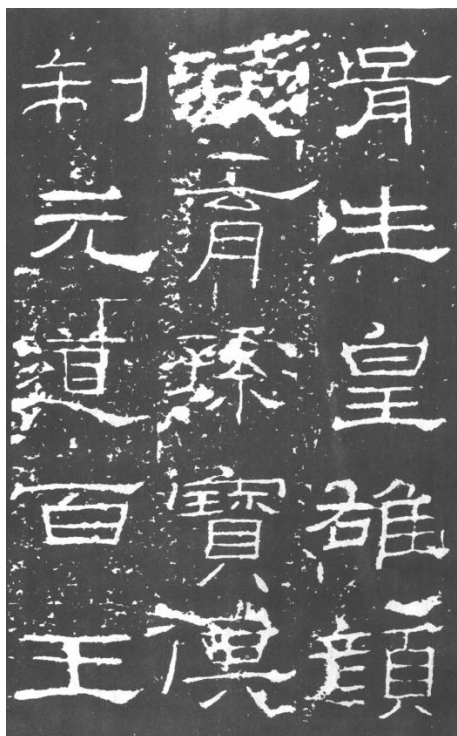 胥生皇雄顏
育寶俱
制元道百王